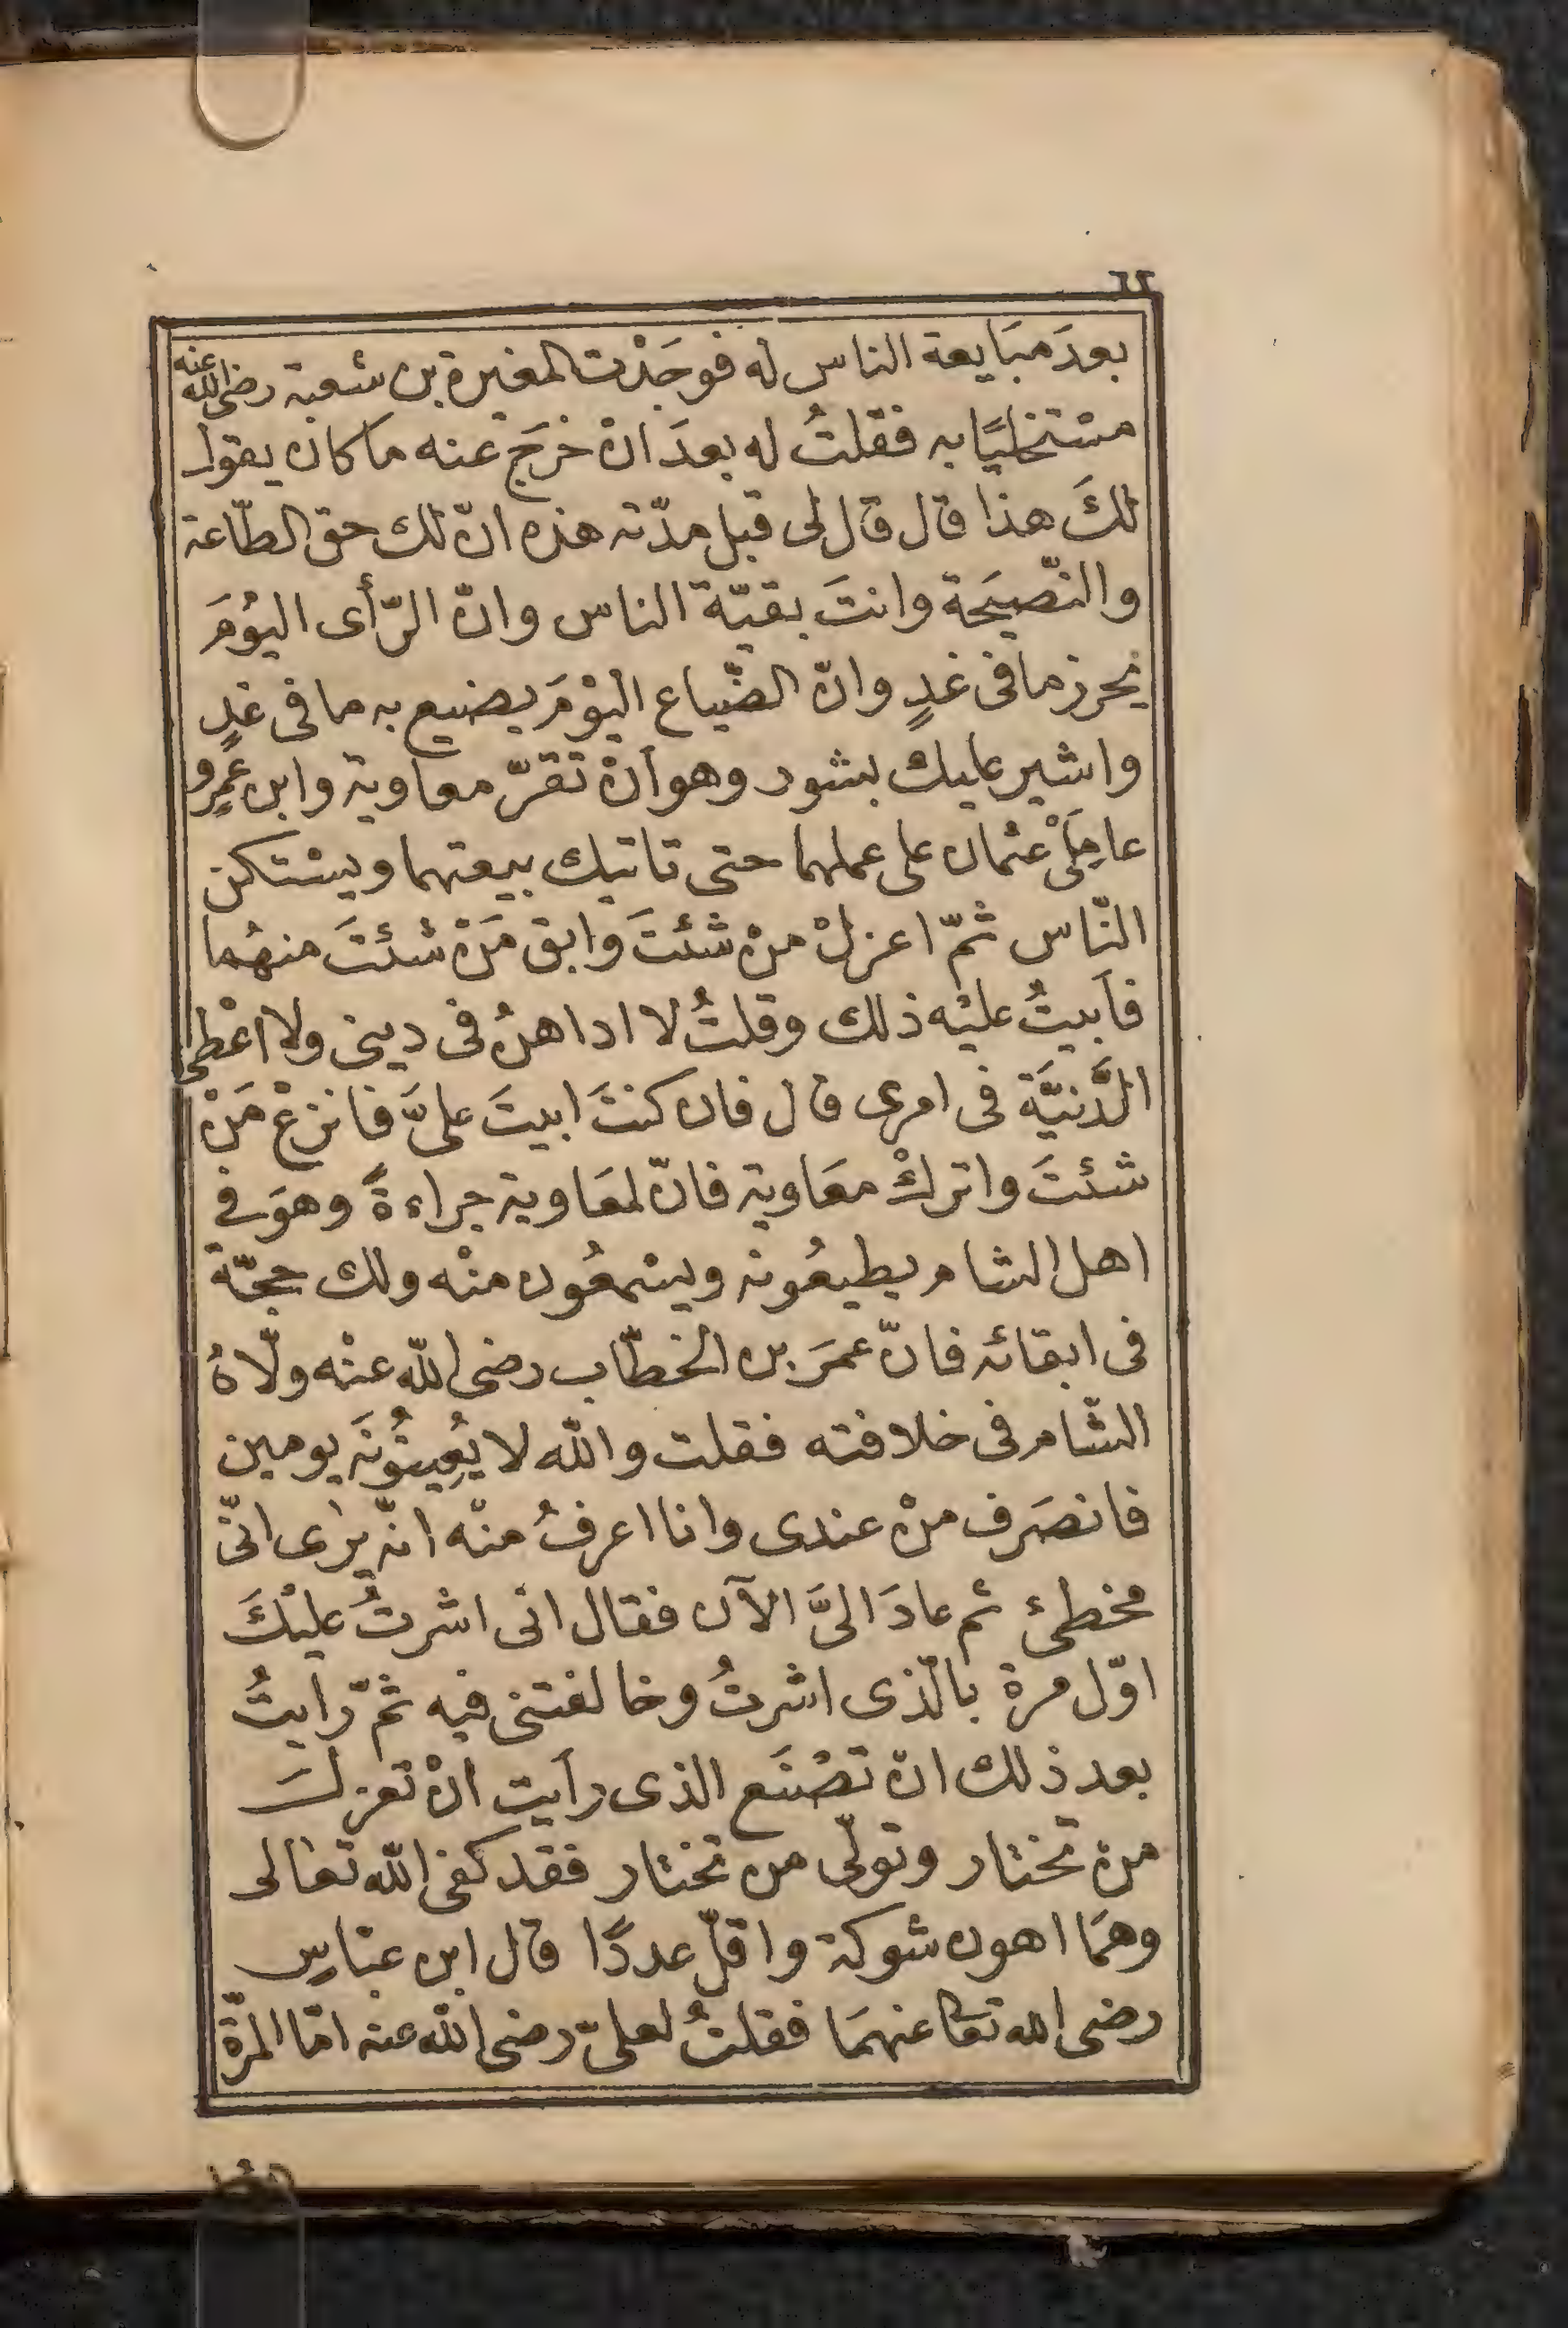 ٦٢
بعدَ مبَايعة الناس له فوجَدْت المغيرة بن شعبة رضى الله عنه
مسْتخليًا به فقلتُ له بعدَ انْ خرَجَ عنه ما كان يقول
لكَ هذا قال قال لى قبل مدّته هذه انّ لك حق الطّاعة
والنّصيَحة وانتَ بقيّة الناس وانّ الرّأى اليوُمَ
يحرز ما فى غدٍ وانّ الضّياع اليوْمَ يضيع به ما فى غدٍ
واشير عليك بشور وهو أنْ تقرّ معاوية وابن عمِرٍو
عامِلَىْ عثمان على عملهما حتى تاتيك بيعتهما ويسْتكن
النّاس ثمّ اعزلْ منْ شئتَ وابق مَنْ شئتَ منهُما
فاَبيتُ عليْه ذلك وقلتُ لا اداهنُ فى دينى ولا اعْطى
الدَّنيَّة فى امرى قال فان كنتَ ابيتَ علىَّ فانزعْ مَنْ
شئتَ واتركْ معَاوية فانّ لمعَاوية جراءةً وهوَ فى
اهل الشام يطيعُونه ويسْمعُون منْه ولك حجّة
فى ابقائه فانّ عمرَ بن الخطّاب رضى اللّه عنْه ولّاهُ
الشّام فى خلافته فقلت واللّه لا يُعِينُونَه يومين
فانصَرف منْ عندى وانا اعرفُ منْه انّه يرٰى انّى
مخطئ ثم عادَ الىَّ الآن فقال انى اشرتُ عليْكَ
اوّل مرة بالّذى اشرتُ وخالفتنى فيه ثمّ رايتُ
بعد ذلك انْ تصْنَع الذى رأيت انْ تعزلَ
منْ تختار وتولّى من تختار فقد كفى اللّه تعالى
وهمَا اهون شوكة واقلّ عددًا قال ابن عبّاس
رضى الله تعا عنهمَا فقلتُ لعلىّ رضى اللّه عنه امّا المرّة